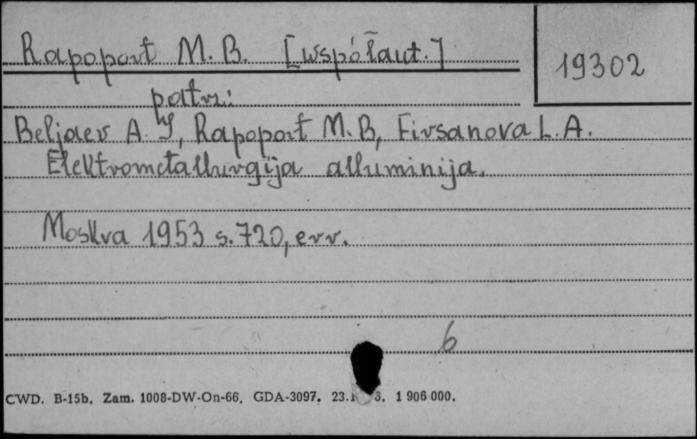 Rapoport M.B. [współaut.]
19302
patrz:
Beljaev A. I, Rapoport M.B, Firsanova L.A.
Elektrometallurgija alluminija.
Moskva 1953 s. 720, err.
6
CWD. B-15b. Zam. 1008-DW-On-66. GDA-3097. 23. 1 906 000.